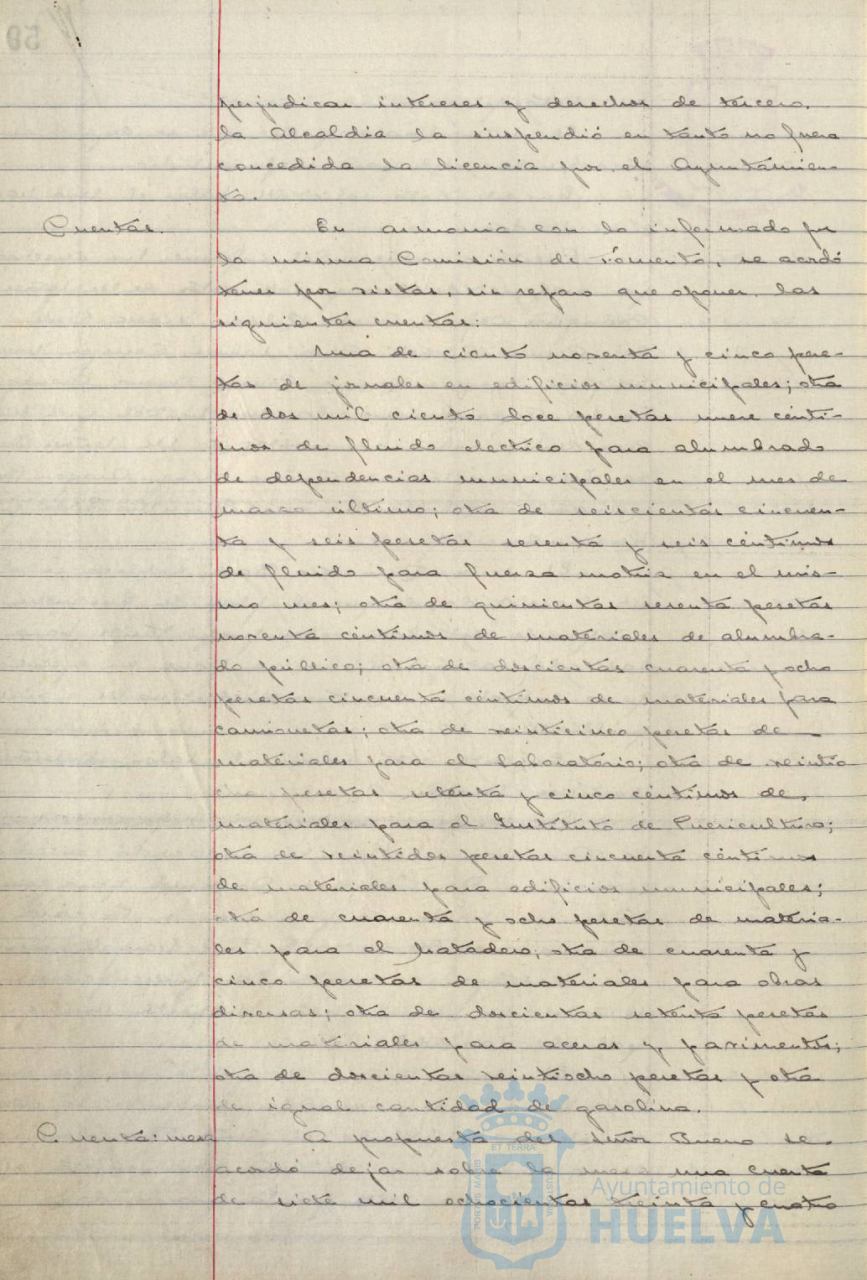 perjudicar intereses y derechos de tercero,
la Alcaldia la suspendió en tanto no fuera
concedida la licencia por el Ayuntamien-
to.
Cuentas.
En armonia con lo informado por
la misma Comisión de Fomento, se acordó
tener por vistas, sin reparo que oponer, las
siguientes cuentas:
Una de ciento noventa y cinco pese-
tas de jornales en edificios municipales; otra
de dos mil ciento doce pesetas nueve cénti-
mos de fluido electrico para alumbrado
de dependencias municipales en el mes de
marzo último; otra de seiscientas cincuen-
ta y seis pesetas sesenta y seis céntimos
de fluido para fuerza motriz en el mis-
mo mes; otra de quinientas sesenta pesetas
noventa céntimos de materiales de alumbra-
do público; otra de doscientas cuarenta y ocho
pesetas cincuenta céntimos de materiales para
camionetas; otra de veinticinco pesetas de
materiales para el Laboratorio; otra de veintio
cho pesetas setenta y cinco céntimos de
materiales para el Instituto de Puericultura;
otra de veintidos pesetas cincuenta céntimos
de materiales para edificios municipales;
otra de cuarenta y ocho pesetas de materia-
les para el Matadero; otra de cuarenta y
cinco pesetas de materiales para obras
diversas; otra de doscientas setenta pesetas
de materiales para aceras y pavimentos;
otra de doscientas veintiocho pesetas y otra
de igual cantidad de gasolina.
Cuenta: mesa
A propuesta del señor Bueno se
acordó dejar sobre la mesa una cuenta
de siete mil ochocientas treinta y cuatro
Ayuntamiento de
HUELVA